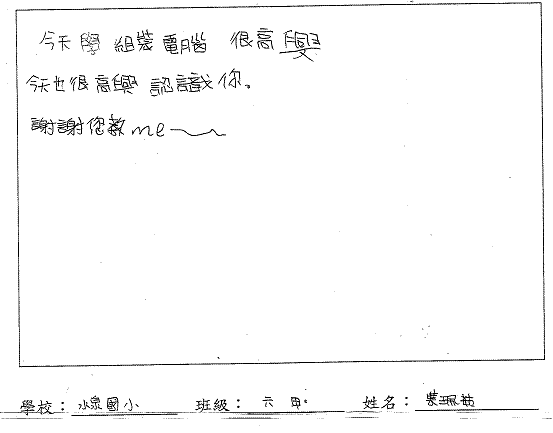 今天學 組裝電腦 很高興
今天也很高興 認識你。
謝謝您教me~
學校：水泉國小 班級：六 甲 姓名：